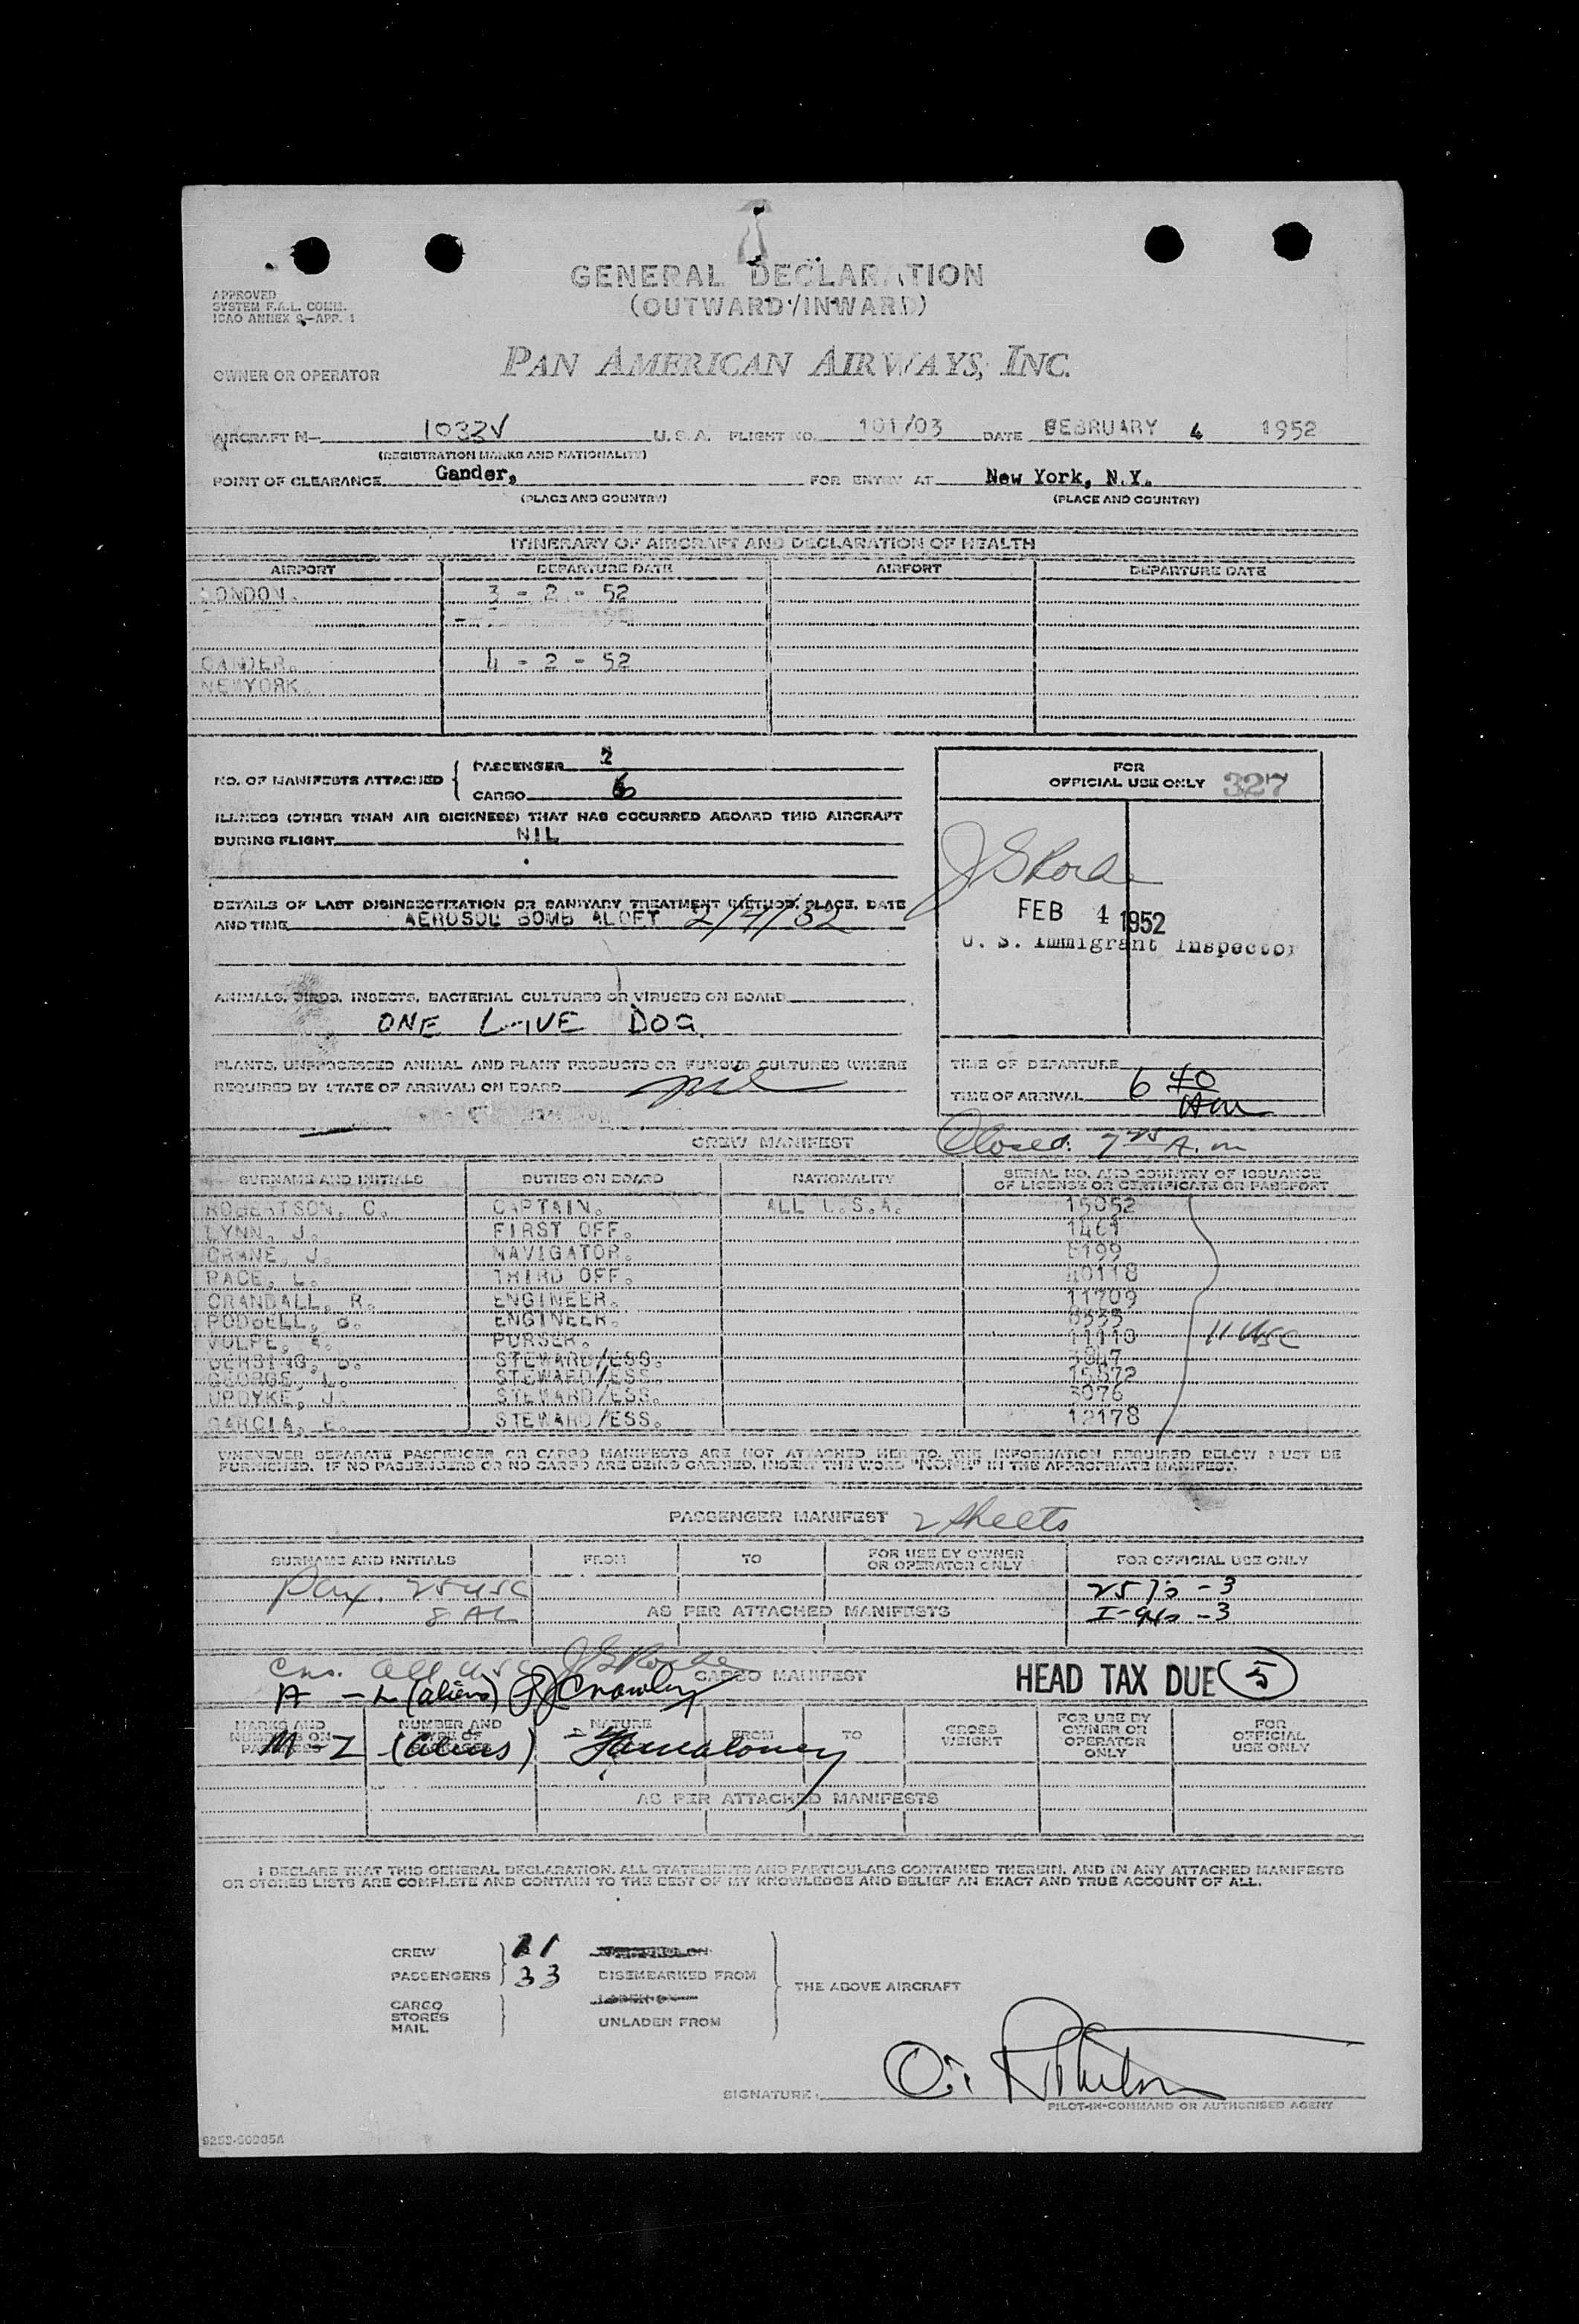 GENERAL DECLARATION
(OUTWARD/INWARD)
APPROVED
SYSTEM F.A.L. COMM.
ICAO ANNEX 9—APP. 1
OWNER OR OPERATOR PAN AMERICAN AIRWAYS, INC.
AIRCRAFT N— 1033V U. S. A. FLIGHT NO. 101/03 DATE FEBRUARY 4 1952
(REGISTRATION MARKS AND NATIONALITY)
POINT OF CLEARANCE Gander, FOR ENTRY AT New York, N.Y.
(PLACE AND COUNTRY) (PLACE AND COUNTRY)
ITINERARY OF AIRCRAFT AND DECLARATION OF HEALTH
AIRPORT DEPARTURE DATE AIRPORT DEPARTURE DATE
LONDON. 3 - 2 - 52
GANDER. 4 - 2 - 52
NEWYORK.
NO. OF MANIFESTS ATTACHED { PASSENGER 2
CARGO 6
FOR
OFFICIAL USE ONLY 327
ILLNESS (OTHER THAN AIR SICKNESS) THAT HAS OCCURRED ABOARD THIS AIRCRAFT
DURING FLIGHT NIL
DETAILS OF LAST DISINSECTIZATION OR SANITARY TREATMENT (METHOD, PLACE, DATE
AND TIME AEROSOL BOMB ALOFT 2/4/52
FEB 4 1952
U. S. Immigrant Inspector
ANIMALS, BIRDS, INSECTS, BACTERIAL CULTURES OR VIRUSES ON BOARD
ONE LIVE DOG.
PLANTS, UNPROCESSED ANIMAL AND PLANT PRODUCTS OR FUNGUS CULTURES (WHERE
REQUIRED BY STATE OF ARRIVAL) ON BOARD nil
TIME OF DEPARTURE
TIME OF ARRIVAL 6 40 AM
Closed. 7 25 A.m
CREW MANIFEST
SURNAME AND INITIALS DUTIES ON BOARD NATIONALITY SERIAL NO. AND COUNTRY OF ISSUANCE
OF LICENSE OR CERTIFICATE OR PASSPORT
ROBERTSON, C. CAPTAIN. ALL U.S.A. 15052
LYNN, J. FIRST OFF. 1461
CRANE, J. NAVIGATOR. 8199
PACE, L. THIRD OFF. 40118
CRANDALL, R. ENGINEER. 11709
PODGELL, ENGINEER. 8535
VOLPE, PURSER. 11110 11 USC
STEWARD/ESS.
GEORGE, L. STEWARD/ESS. 15872
UPDYKE, J. STEWARD/ESS. 5076
GARCIA, E. STEWARD/ESS. 12178
WHENEVER SEPARATE PASSENGER OR CARGO MANIFESTS ARE NOT ATTACHED HERETO, THE INFORMATION REQUIRED BELOW MUST BE
FURNISHED. IF NO PASSENGERS OR NO CARGO ARE BEING CARRIED, INSERT THE WORD "NONE" IN THE APPROPRIATE MANIFEST.
PASSENGER MANIFEST 2 sheets
SURNAME AND INITIALS FROM TO FOR USE BY OWNER
OR OPERATOR ONLY FOR OFFICIAL USE ONLY
Pax. 25 USC
8 AL AS PER ATTACHED MANIFESTS
CARGO MANIFEST
HEAD TAX DUE 5
A - L (aliens) JJ Crowley
MARKS AND
NUMBERS ON
PACKAGES NUMBER AND
TYPE OF
PACKAGES NATURE FROM TO GROSS
WEIGHT FOR USE BY
OWNER OR
OPERATOR
ONLY FOR
OFFICIAL
USE ONLY
M - Z (aliens)
AS PER ATTACHED MANIFESTS
I DECLARE THAT THIS GENERAL DECLARATION, ALL STATEMENTS AND PARTICULARS CONTAINED THEREIN, AND IN ANY ATTACHED MANIFESTS
OR STORES LISTS ARE COMPLETE AND CONTAIN TO THE BEST OF MY KNOWLEDGE AND BELIEF AN EXACT AND TRUE ACCOUNT OF ALL.
CREW 11
PASSENGERS 33 DISEMBARKED FROM
THE ABOVE AIRCRAFT
CARGO
STORES
MAIL
UNLADEN FROM
SIGNATURE
PILOT-IN-COMMAND OR AUTHORISED AGENT